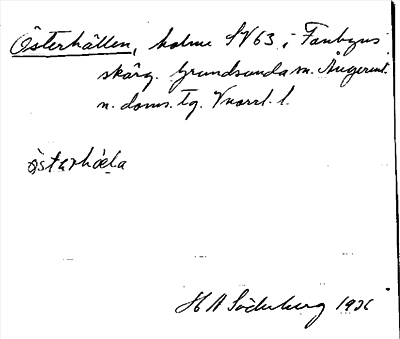 Österhällen, holme SV63 i Fanbyns
skärg. Grundsunda sn. Ångerml.
n. doms. tg. Vnorrl. l.
österhæla
H A Söderberg 1936